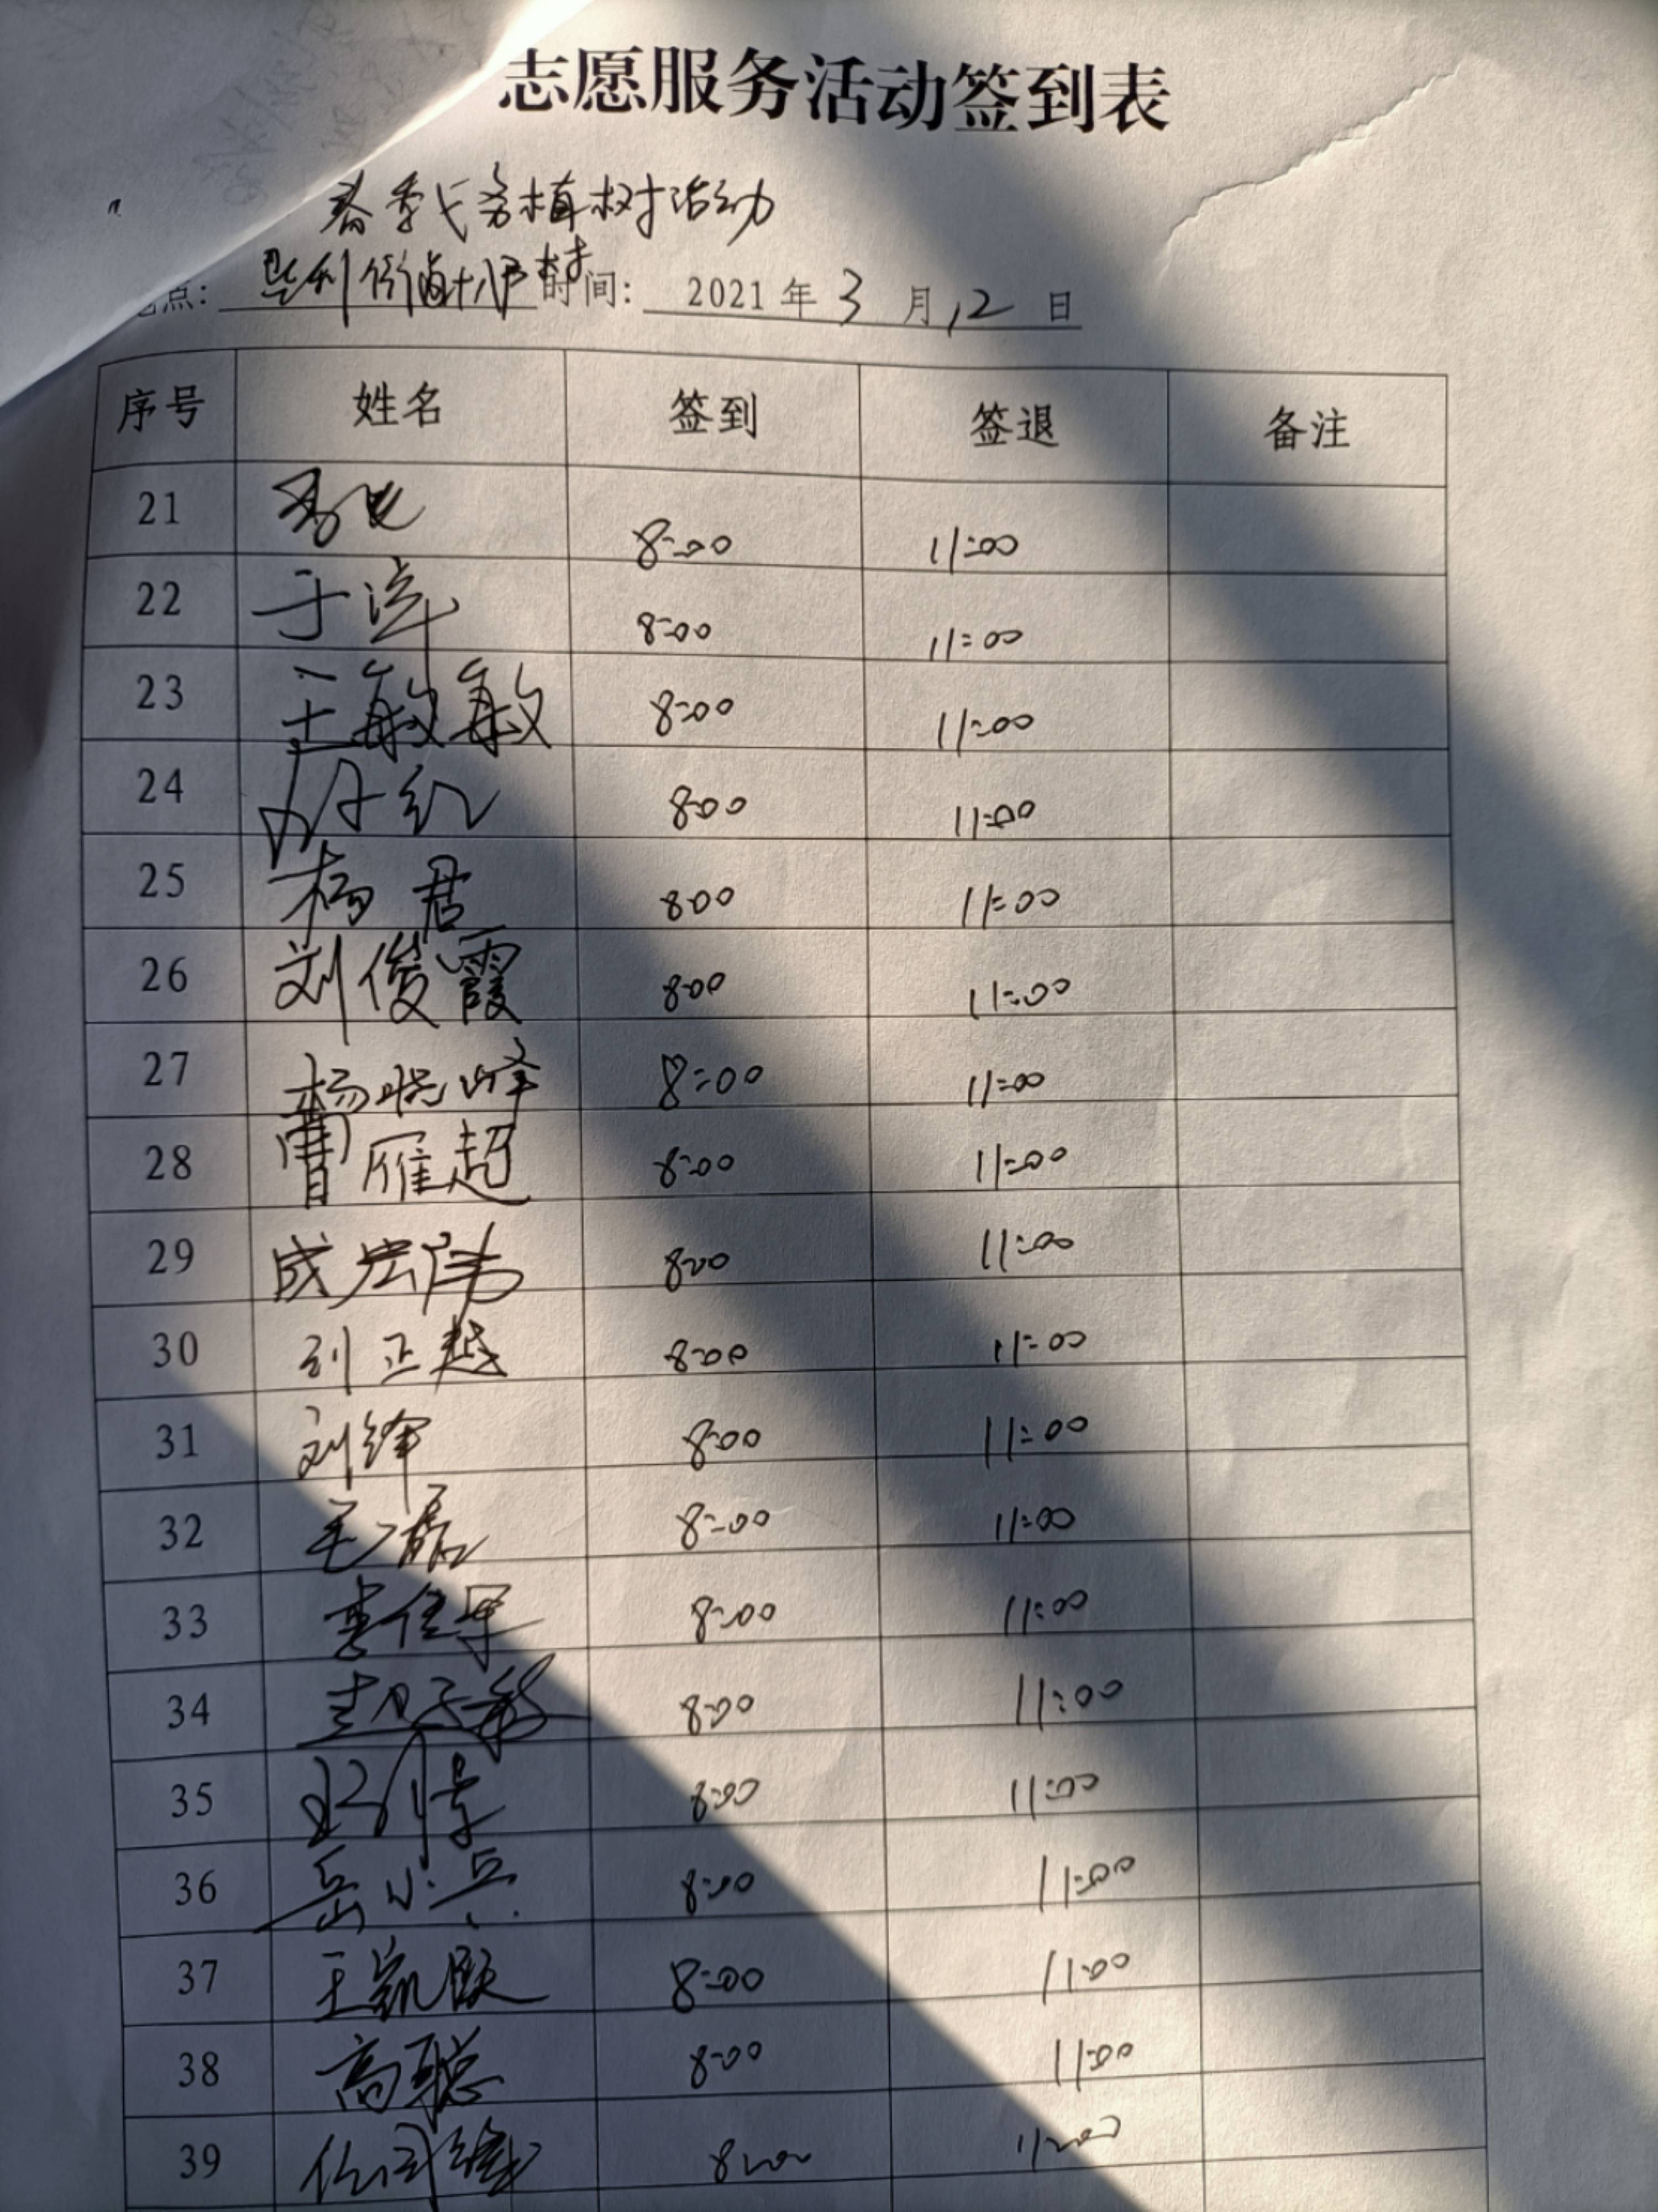 志愿服务活动签到表
春季义务植树活动
点: 时间: 2021 年 3 月 12 日
序号 姓名 签到 签退 备注
21 8:00 11:00
22 于洋 8:00 11:00
23 王敏敏 8:00 11:00
24 红 8:00 11:00
25 杨君 8:00 11:00
26 刘俊霞 8:00 11:00
27 杨晓峰 8:00 11:00
28 曹雁超 8:00 11:00
29 成宏伟 8:00 11:00
30 刘正越 8:00 11:00
31 刘锋 8:00 11:00
32 毛磊 8:00 11:00
33 李佳军 8:00 11:00
34 8:00 11:00
35 8:00 11:00
36 岳小兵 8:00 11:00
37 王凯跃 8:00 11:00
38 高聪 8:00 11:00
39 8:00 11:00